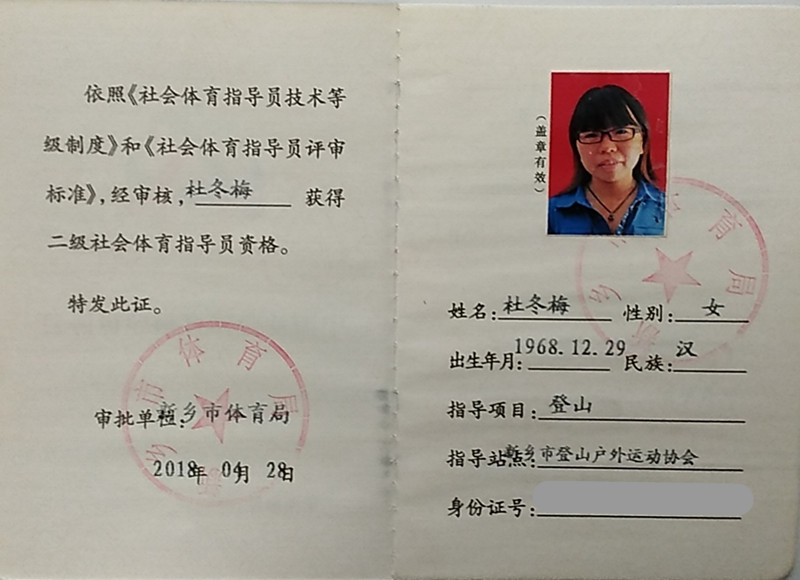 依照《社会体育指导员技术等
级制度》和《社会体育指导员评审
标准》,经审核,杜冬梅 获得
二级社会体育指导员资格。
特发此证。
审批单位:新乡市体育局
2018年 04月 28日
新乡市体育局
(盖章有效)
姓名:杜冬梅 性别:女
出生年月:1968.12.29 民族:汉
指导项目:登山
指导站点:新乡市登山户外运动协会
身份证号:
新乡市体育局